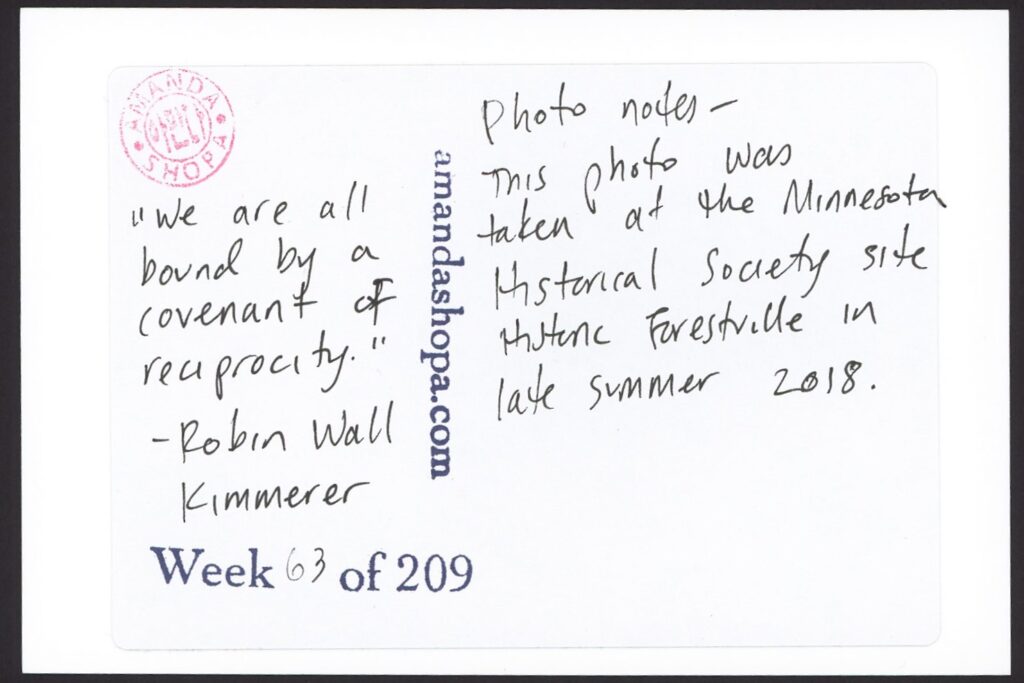 AMANDA
SHOPA
"We are all
bound by a
covenant of
reciprocity."
-Robin Wall
Kimmerer
Week 63 of 209
amandashopa.com
Photo notes-
This photo was
taken at the Minnesota
Historical Society site
Historic Forestville in
late summer 2018.